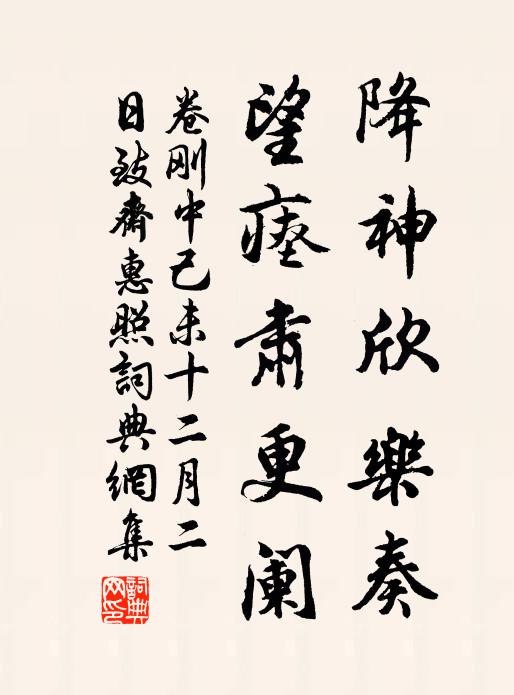 降神欣樂奏
望瘞肅更闌
卷剛中己未十二月二
日致齊惠照詞典網集
詞典網印